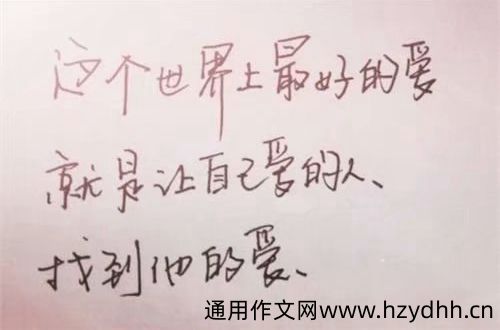 这个世界上最好的爱
就是让自己爱的人、
找到他的爱、
通用作文网www.hzydhh.cn